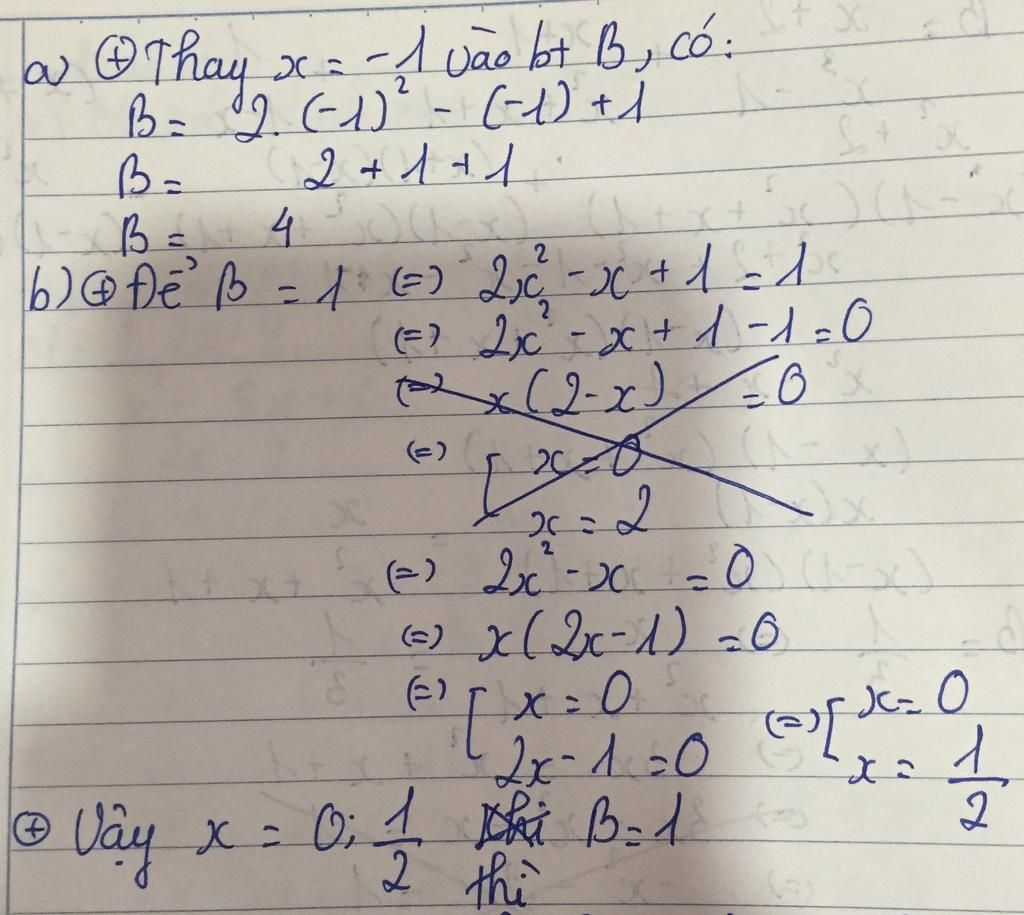 a) ⊕ Thay x = -1 vào bt B, có:
B = 2.(-1)² - (-1) + 1
B = 2 + 1 + 1
B = 4
b) ⊕ Để B = 1 (=) 2x² - x + 1 = 1
(=) 2x² - x + 1 - 1 = 0
(=) x(2-x) = 0
(=) [ x = 0
x = 2
(=) 2x² - x = 0
(=) x(2x-1) = 0
(=) [ x = 0 (=) [ x = 0
2x - 1 = 0 x = 1/2
⊕ Vậy x = 0; 1/2 khi B = 1
thì